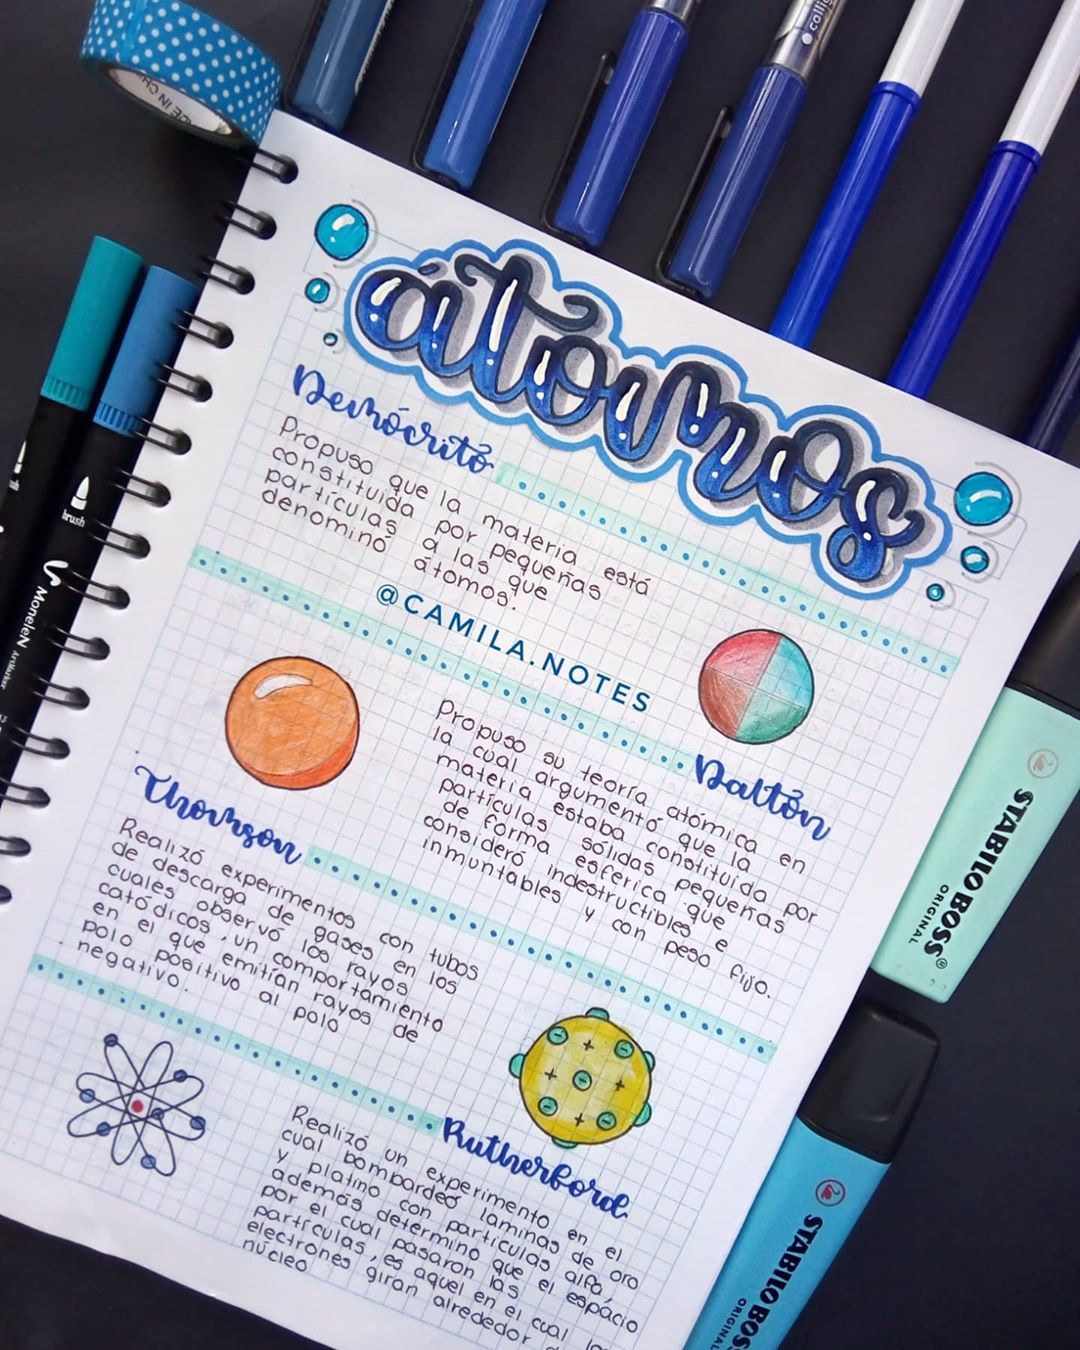 átomos
Demócrito
Propuso que la materia está
constituida por pequeñas
partículas a las que
denominó átomos.
@CAMILA.NOTES
Dalton
Propuso su teoría atómica en
la cual argumentó que la
materia estaba constituida por
partículas sólidas pequeñas
de forma esférica que
consideró indestructibles e
inmuntables y con peso fijo.
Thomson
Realizó experimentos con tubos
de descarga de gases en los
cuales observó los rayos
catódicos, un comportamiento
en el que emitían rayos de
polo positivo al polo
negativo.
Rutherford
Realizó un experimento en el
cual bombardeó laminas de oro
y platino con partículas alfa,
además determinó que el espacio
por el cual pasaron las
partículas, es aquel en el cual
electrones giran alrededor
núcleo
brush
MoneleN
ArtMarker
STABILO BOSS
ORIGINAL
STABILO BOSS
ORIGINAL